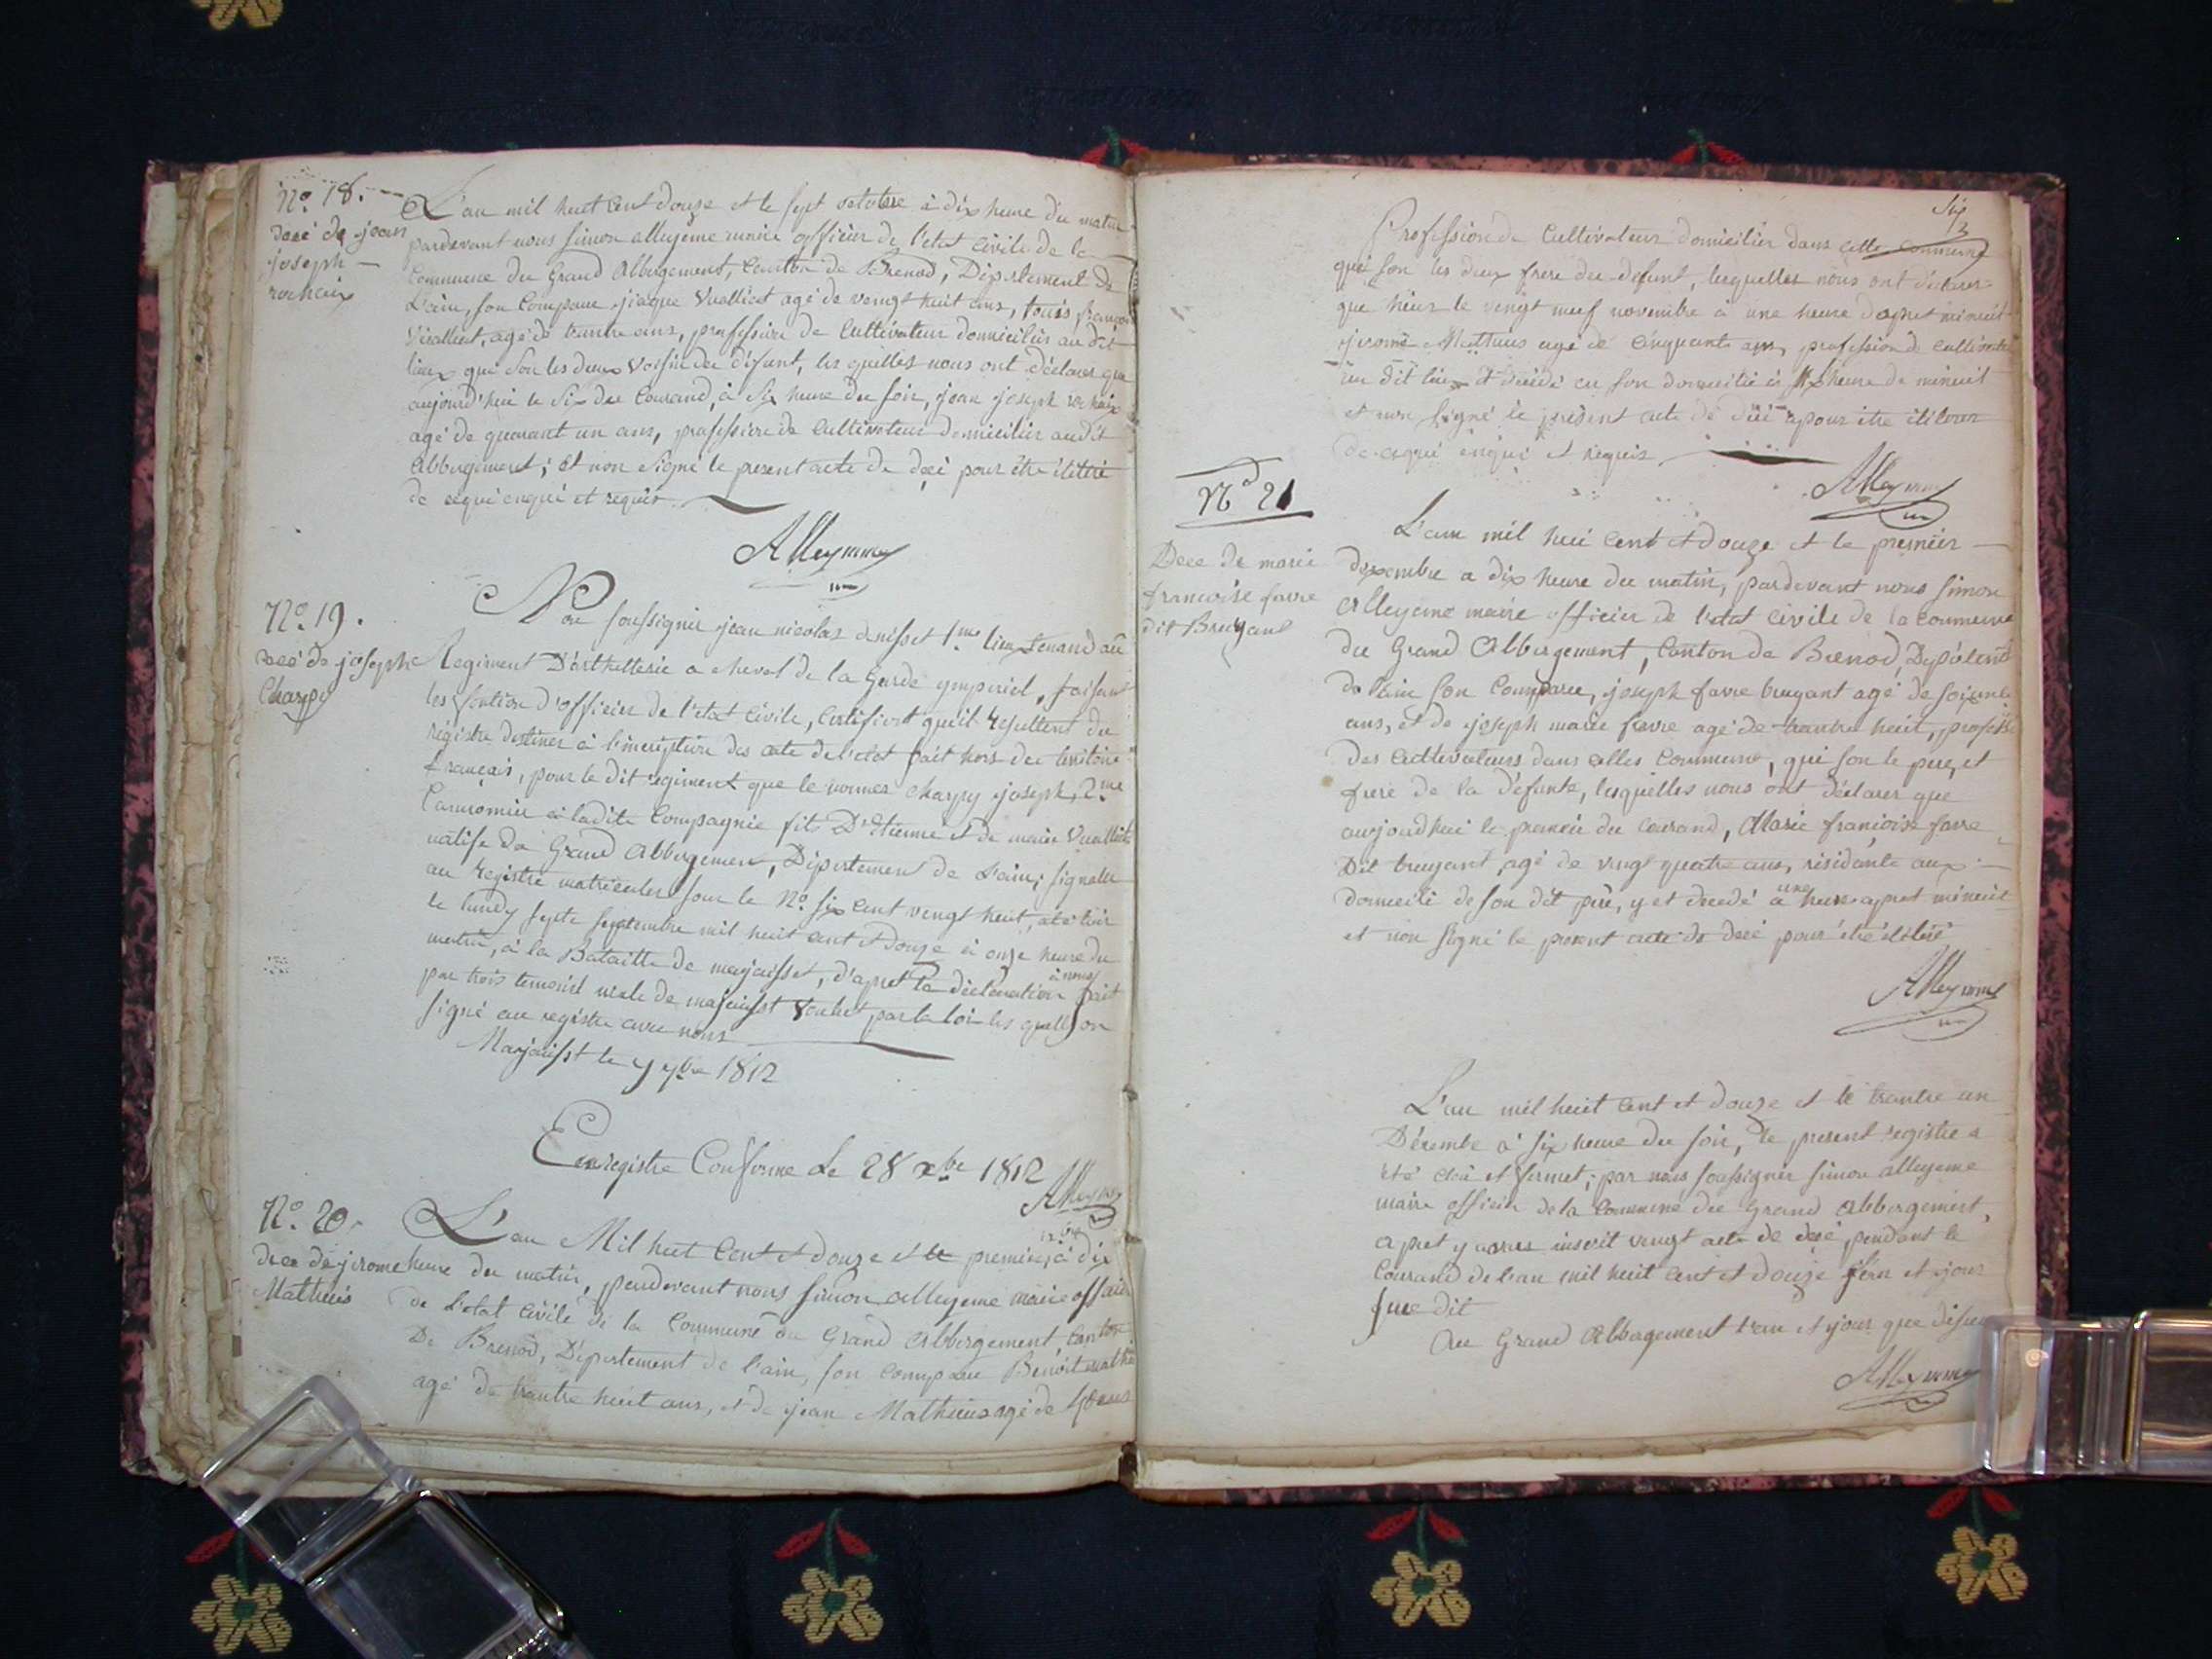 No. 18.
decé de jean
joseph
rochaix
L'an mil huit Cent douze et le sept octobre à dix heure du matin
pardevant nous simon alleyeme maire officier de l'etat civile de la
Commune du Grand Abbergement, Canton de Brenod, Département de
L'ain, son Comparue jiaque Vuaillat agé de vengt huit ans, françois
Vuaillat, agé de trantre ans, professions de Cultivateur domiciliés au dit
lieux qui son les deux voisin du défunt, les quelles nous ont déclarer que
aujourd'hui le six du Courand, à six heure du soir, jean joseph rochaix
agé de quarant un ans, professions de Cultivateur domicilier audit
Abbergement; et non signé le present acte de decé pour être délivré
de cequi enqui et requis
Alleymme
No. 19.
decé de joseph
Charpy
Nou soussignér jean nicolas denisset 1.me lieutenand au
Regiment D'arthellerie a cheval de la Garde ymperiel, faisant
les fontion d'officier de l'etat Civile, certifiont qu'il resultent du
régistre destiner à l'inscription des acte de l'etat fait hors du teritoire
français, pour le dit regiment que le nommer Charpy joseph, 2.me
Cannonnier à ladite Compagnie fils D'Etienne et de marie Vuaillat
natife du Grand Abbergement, Département de L'ain; signaler
au registre matricules sour le No. six Cent vengt huit, été tuér
le lundy septe septembre mil huit Cent et douze à onze heure du
matin, à la Bataille de mojaisst, d'apret la déclaration à nous fait
par trois temoins male de majaisst voulut par la loi les quelles on
signé au registre avec nous
Mojaisst le 7 7bre 1812
Enregistre Conforme Le 28 xbre 1812
Alleymme
No. 20.
decé de jirome
Mathieus
L'an Mil huit Cent et douze et le premier xbre à dix
heure du matin, pardevant nous simon alleyeme maire officier
de l'etat civile de la Commune du Grand Abbergement, Canton
De Brenod, Département de l'ain, son comparue Benoit mathieu
agé de trantre huit ans, et de jean Mathieus agé de
Six
Profession de Cultivateur domicilier dans cette commune
qui son les deux frere du defunt, lesquelles nous ont déclarer
que hier le vengt neuf novembre à une heure d'apret minuit
jiromé Mathius agé de cinquante ans, profession de cultivateur
au dit lieu et décédé en son domicilie à heure de minuit
et non signé le présent acte de décé pour être délivrer
de cequi enqui et requis
Alleymme
No 21
Decé de marie
francoise favre
dit Bruyant
L'an mil hui cent et douze et le premier
dexembre a dix heure du matin, pardevant nous simon
Alleyeme maire officier de l'etat civile de la Commune
du Grand Abbergement, Canton de Brenod, Départemt
de l'ain son Comparue, joseph favre bruyant agé de soixante
ans, et de joseph marie favre agé de trantre huit, profession
des cultivateurs dans celles Commune, qui son le pere, et
frere de la défunte, lesquelles nous ont déclarer que
aujourdhui le premier du courand, Marie françoise favre
Dit bruyant, agé de vengt quatre ans, résidante aux
domicili de son dit père, y et decedé à une heure apret minuit
et non signé le present acte de decé pour être délivré
Alleymme
L'an mil huit Cent et douze et le trantre un
Décembe à six heure du soir, le present registre a
été cloi et fermet; par nous soussignér simon alleyeme
maire officier de la commune du Grand Abbergement,
apret y avoir inscrit vengt acte de decé pendant le
Courand de l'an mil huit Cent et douze l'an et jour
sue dit
Au Grand Abbergement l'an et jour que dessu
Alleymme